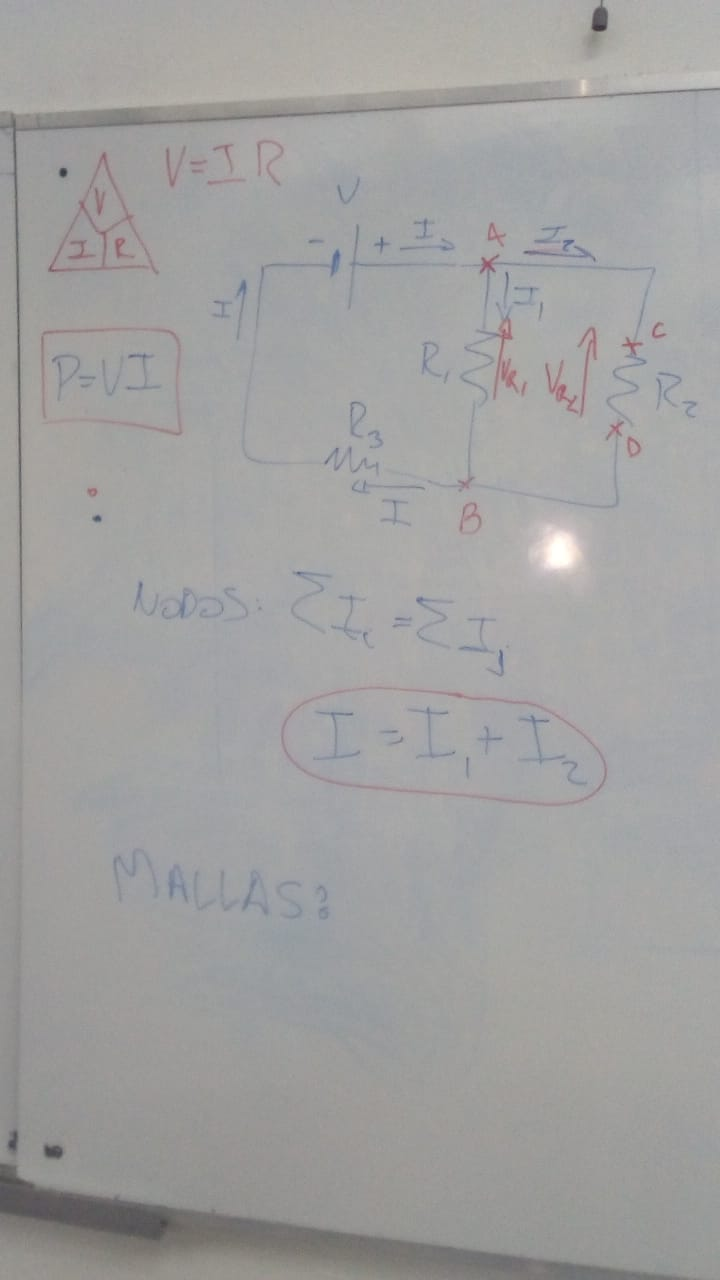 V=IR
V
I R
P=VI
V
- + I A I₂
I I₁
R₁ VR₁ VR₂ C R₂
D
R₃
I B
NODOS: ΣIᵢ = ΣIⱼ
I = I₁ + I₂
MALLAS: